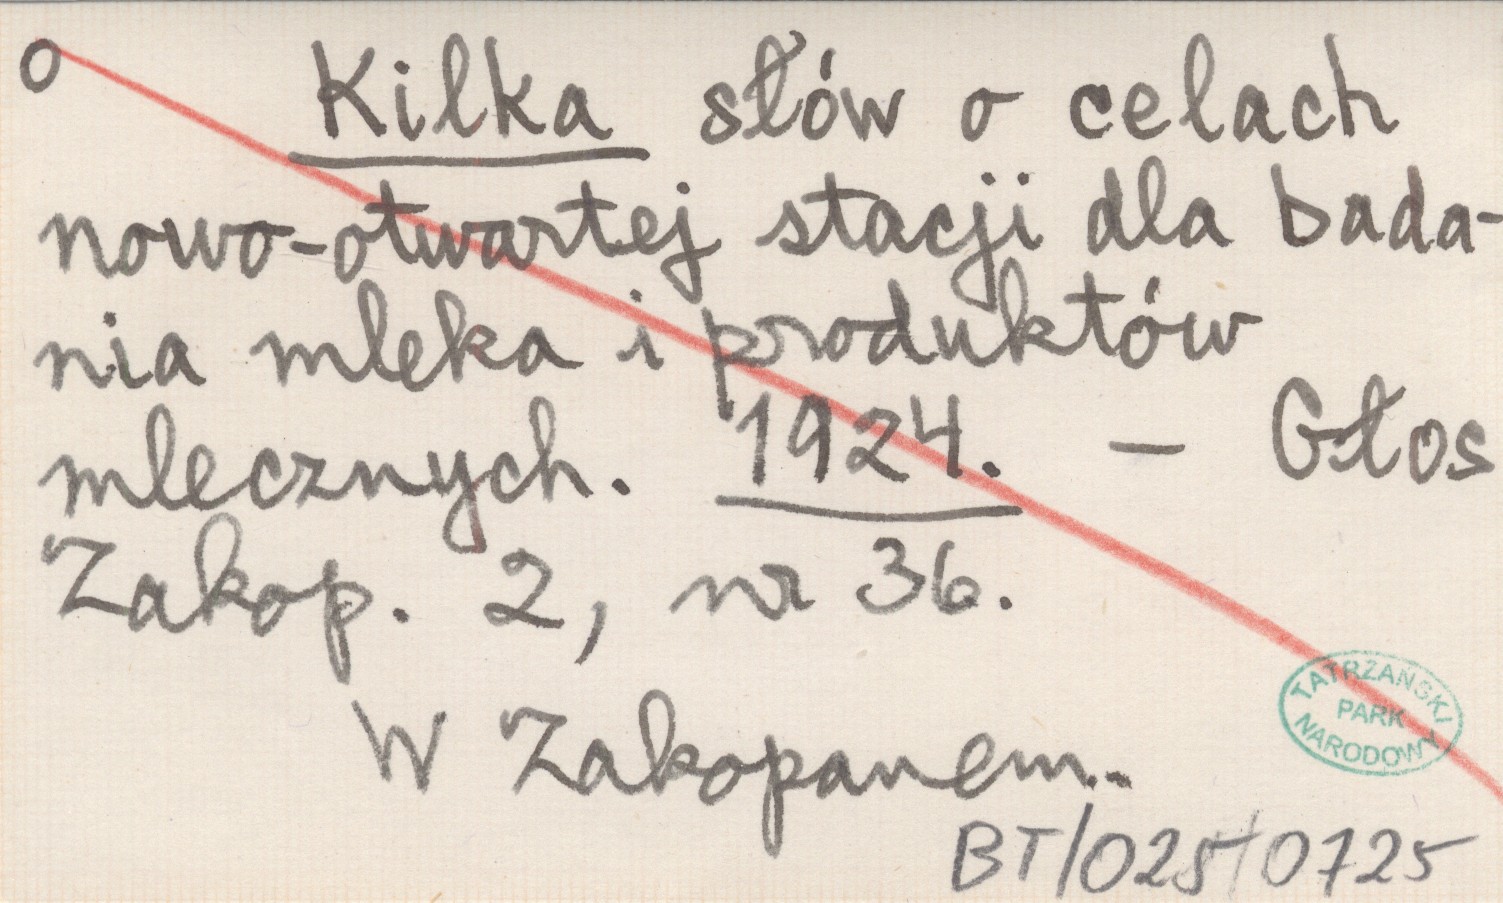 o Kilka słów o celach
nowo-otwartej stacji dla bada-
nia mleka i produktów
mlecznych. 1924. — Głos
Zakop. 2, nr 36.
W Zakopanem..
TATRZAŃSKI
PARK
NARODOWY
BT/025/0725